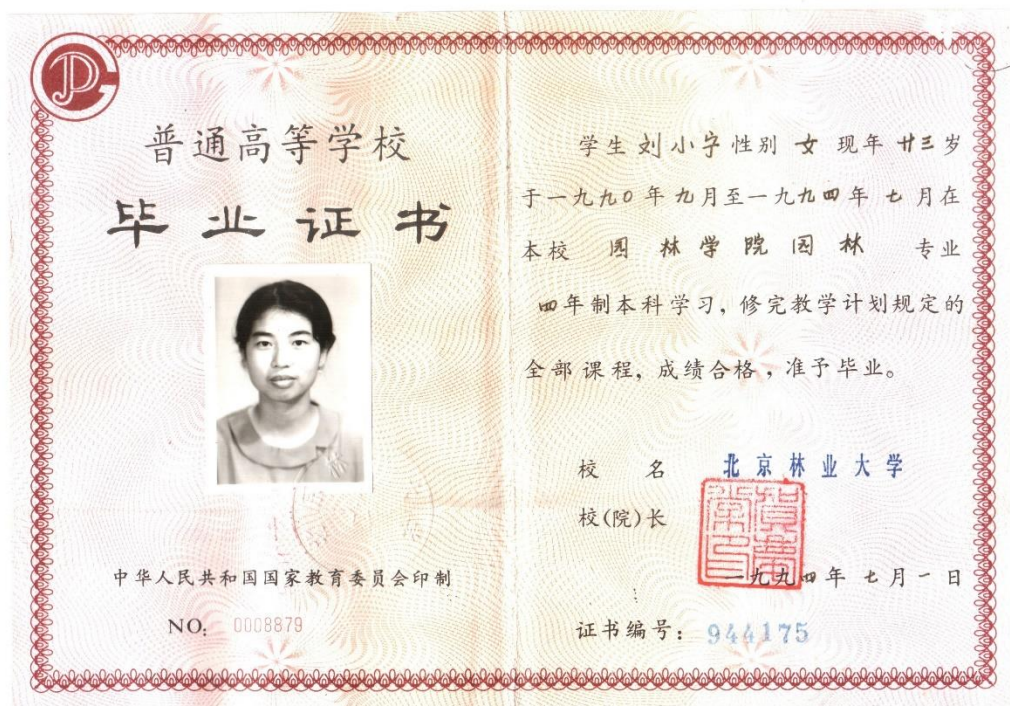 普通高等学校
毕业证书
中华人民共和国国家教育委员会印制
NO: 0008879
学生 刘小字 性别 女 现年 廿三岁
于一九九0年九月至一九九四年七月在
本校 园林学院园林 专业
四年制本科学习，修完教学计划规定的
全部课程，成绩合格，准予毕业。
校 名 北京林业大学
校(院)长
一九九四年七月一日
证书编号：944175